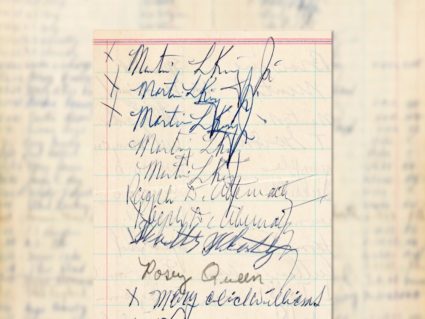 x Martin L King Jr.
x Martin L King Jr.
x Martin L King Jr.
Martin L King
Martin L King
Ralph D. Abernathy
Ralph D. Abernathy
Posey Queen
x Mary Alice Williams